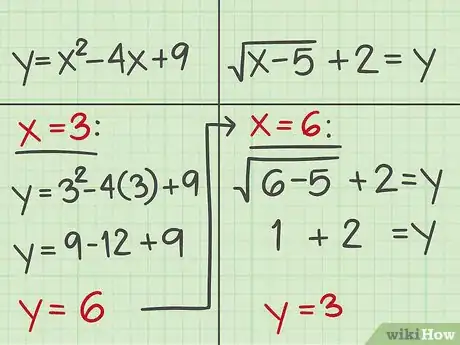 y=x²-4x+9
x=3:
y=3²-4(3)+9
y=9-12+9
y=6
√x-5+2=y
x=6:
√6-5+2=y
1+2=y
y=3
wikiHow